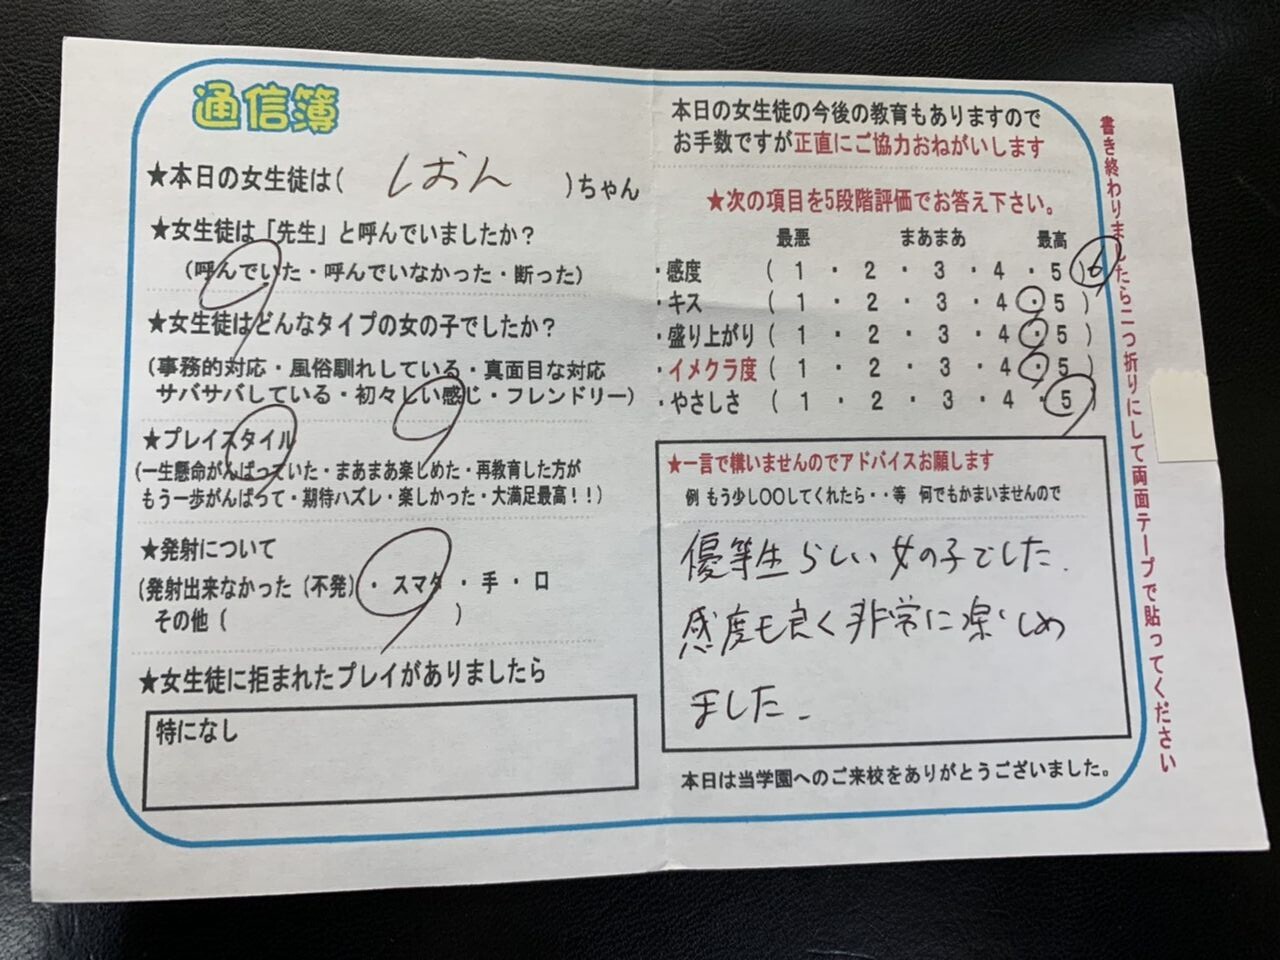 通信簿
★本日の女生徒は( しおん )ちゃん
★女生徒は「先生」と呼んでいましたか?
(呼んでいた・呼んでいなかった・断った)
★女生徒はどんなタイプの女の子でしたか?
(事務的対応・風俗馴れしている・真面目な対応
サバサバしている・初々しい感じ・フレンドリー)
★プレイスタイル
(一生懸命がんばっていた・まあまあ楽しめた・再教育した方が
もう一歩がんばって・期待ハズレ・楽しかった・大満足最高!!)
★発射について
(発射出来なかった(不発)・スマタ・手・口
その他( )
★女生徒に拒まれたプレイがありましたら
特になし
本日の女生徒の今後の教育もありますので
お手数ですが正直にご協力おねがいします
★次の項目を5段階評価でお答え下さい。
最悪 まあまあ 最高
・感度 ( 1 ・ 2 ・ 3 ・ 4 ・ 5 ) 6
・キス ( 1 ・ 2 ・ 3 ・ 4 ・ 5 )
・盛り上がり ( 1 ・ 2 ・ 3 ・ 4 ・ 5 )
・イメクラ度 ( 1 ・ 2 ・ 3 ・ 4 ・ 5 )
・やさしさ ( 1 ・ 2 ・ 3 ・ 4 ・ 5 )
★一言で構いませんのでアドバイスお願します
例 もう少し〇〇してくれたら・・等 何でもかまいませんので
優等生らしい女の子でした.
感度も良く非常に楽しめ
ました.
本日は当学園へのご来校をありがとうございました。
書き終わりましたら二つ折りにして両面テープで貼ってください